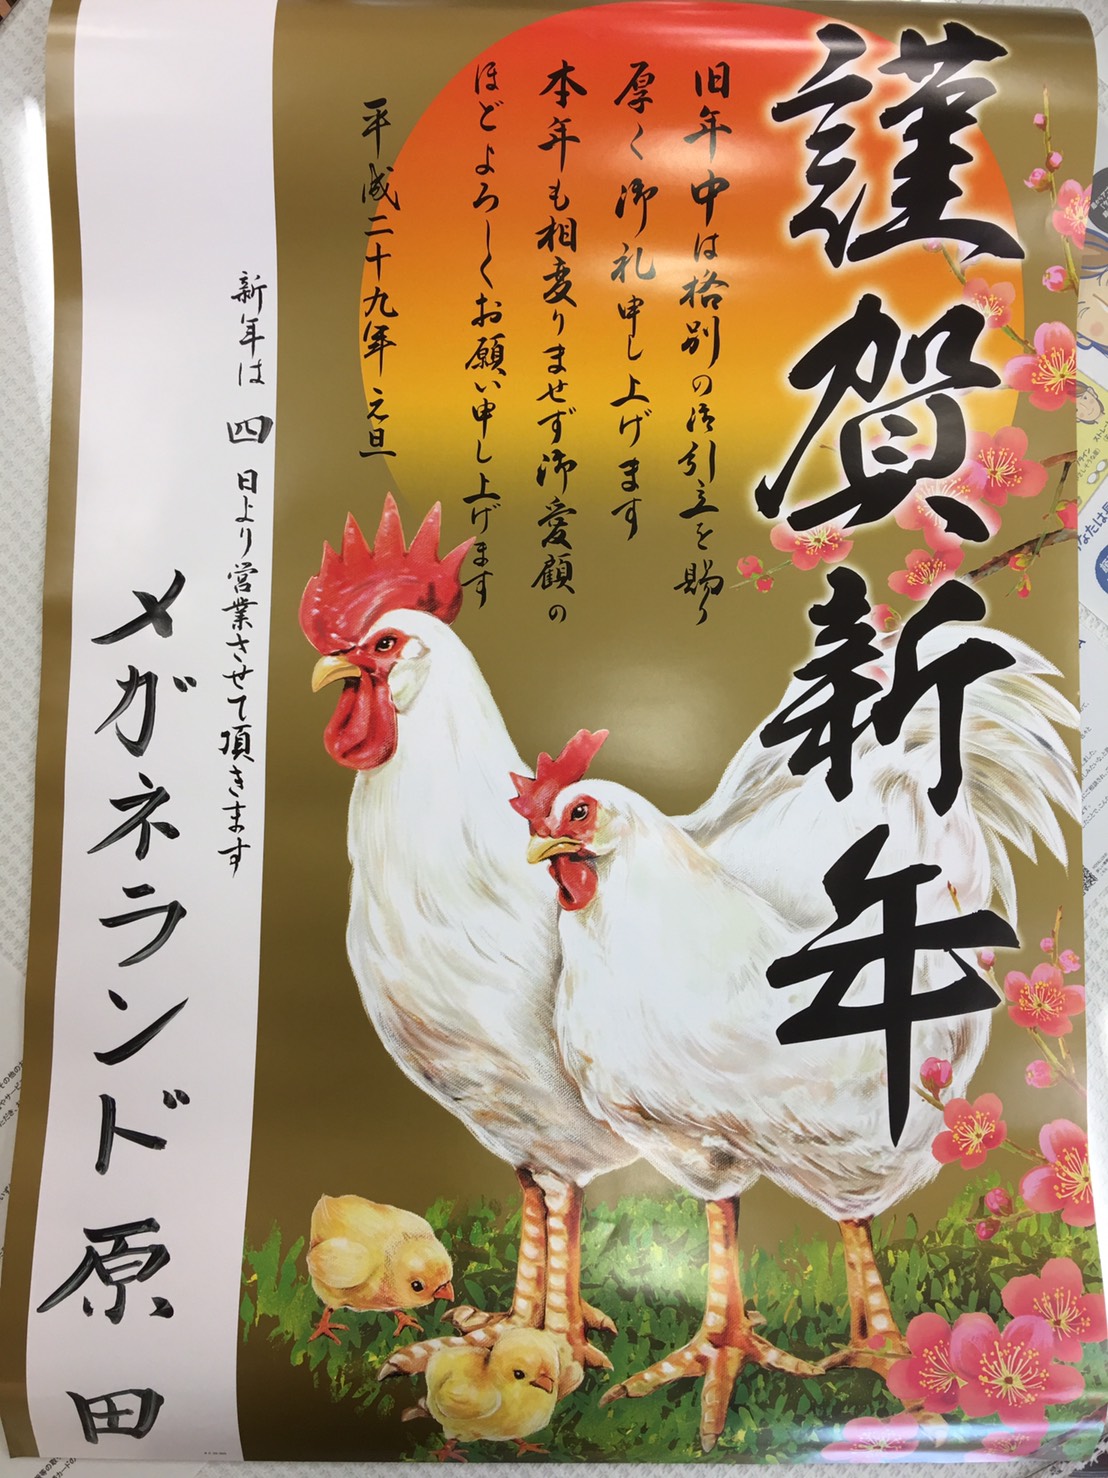 謹賀新年
旧年中は格別の御引立を賜り
厚く御礼申し上げます
本年も相変りませず御愛顧の
ほどよろしくお願い申し上げます
平成二十九年 元旦
新年は 四 日より営業させて頂きます
メガネランド原田